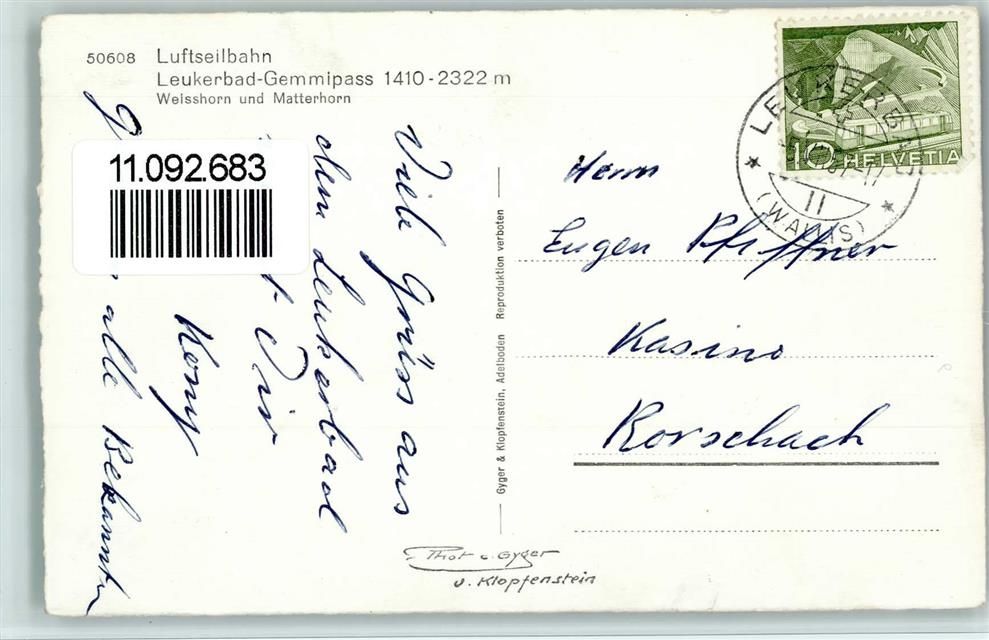 50608 Luftseilbahn
Leukerbad-Gemmipass 1410-2322 m
Weisshorn und Matterhorn
11.092.683
Viele Grüss aus
dem Leukerbad
Dir
alle Bekannten
Gyger & Klopfenstein, Adelboden Reproduktion verboten
Phot. Gyger
u. Klopfenstein
10 HELVETIA
LEUKERBAD
11
(WALLIS)
Herrn
Eugen Pfiffner
Kasino
Rorschach